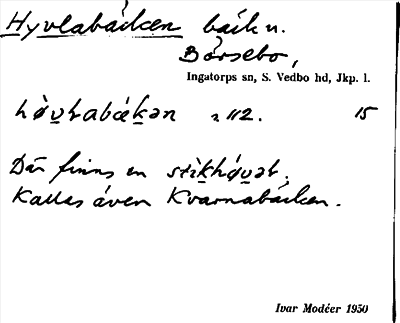 Hyvlabäcken bäck n.
Börsebo,
Ingatorps sn, S. Vedbo hd, Jkp. l.
112. 15
Där finns en
Kallas även Kvarnabäcken.
Ivar Modéer 1950